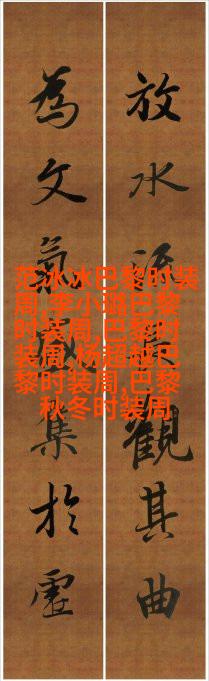 放水觀其曲
為文氣集於虛
范冰冰巴黎时装
周,李小璐巴黎
时装周,巴黎时
装周,杨超越巴
黎时装周,巴黎
秋冬时装周